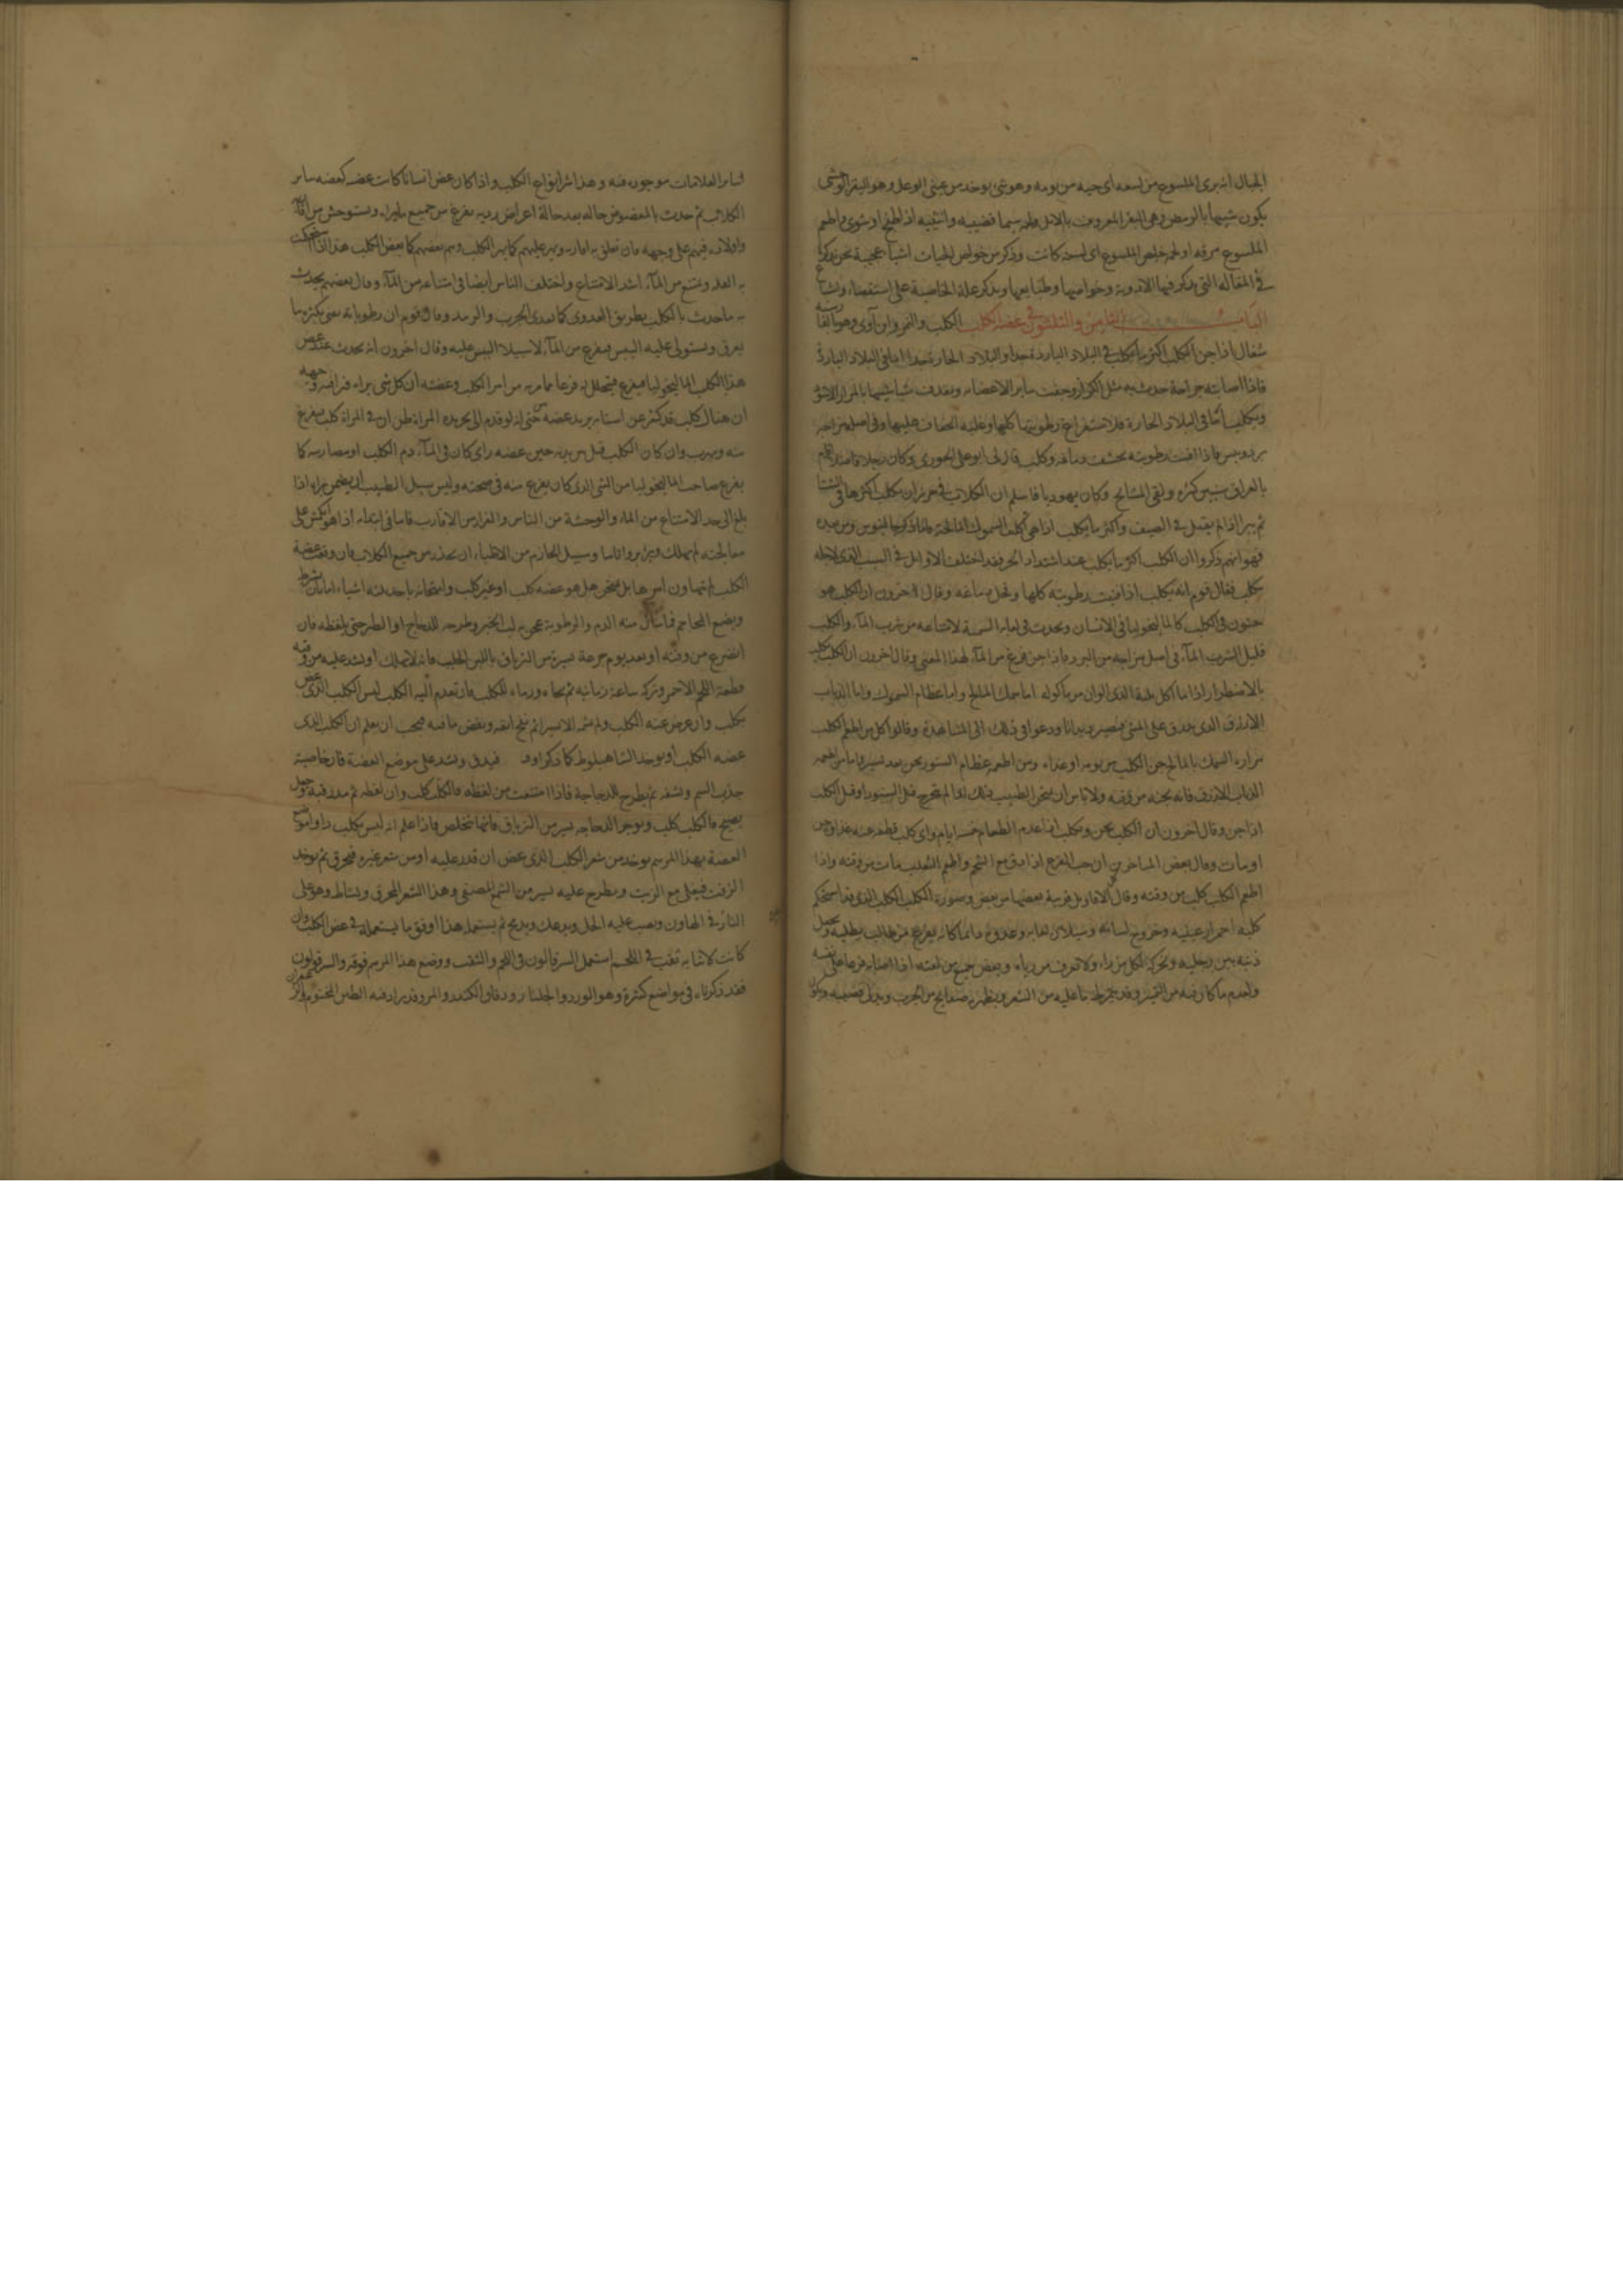 الجبال انه برى الملسوع من لسعه اى حيه من يومه وهو شى يوخذ من عينى الوعل وهو البقر الوحشى
يكون شبيها بالرمص وهى البقر المعروف بالايل ولحمه سيما قضيبه وانثييه اذا طبخ او شوى واطعم
الملسوع مرقه او لحمه خلص الملسوع اى لسعة كانت وذكر من خواص الحيات اشياء عجيبة نحن نذكرها
فى المقاله التى نذكر فيها الادوية وخواصها وطبايعها ونذكر علة الخاصية على استقصاء
الباب الثامن والثلثون فى عضه الكلب الكلب والنمر وابن آوى وهو
شغال اذا جن الكلب اكثر ما يكلب فى البلاد الباردة جدا والبلاد الحارة جدا اما فى البلاد الباردة
فاذا اصابته جراحة حدث به مثل الكزاز وجفت ساير الاعضاء
ويكلب ايضا فى البلاد الحارة فلاستفراغ رطوبتها كلها وغلبه الجفاف عليها وفى اصل مزاجه
برد ويبس فاذا افنت رطوبته نحشفت دماغه وكلب قال لى ابو على الحورى وكان رجلا فاضلا اقام
بالعراق سنين كثيره ولقى المشايخ وكان يهوديا فاسلم ان الكلاب فى حزيران يكلب اكثرها فى الشتا
ثم يبرا اذا لم يقتل فى الصيف واكثر ما يكلب اذا هى اكلت السموك المالحة فاما ذكر جالينوس ومن بعده
فهو انهم ذكروا ان الكلب اكثر ما يكلب عند اشتداد الحر فقد اختلف الاوايل فى السبب الذى لاجله
يكلب فقال قوم انه يكلب اذا فنيت رطوبته كلها ونحل دماغه وقال اخرون ان الكلب هو
جنون فى الكلب كالماليخوليا فى الانسان ويحدث فى لعابه السمية لامتناعه من شرب المآء والكلب
قليل الشرب المآء فى اصل مزاجه من البرد فاذا جن فزع من المآء لهذا المعنى وقال اخرون ان الكلب يكلب
بالاضطرار اذا ما اكل ثلثة الوان من ماكوله اما سمك المالح واما عظام السموك واما الذباب
الازرق الذى على الشى فيصير ديدانا ودعوا فى ذلك الى المشاهدة وقالوا كل من اطعم الكلب
مراره السمك المالح جن الكلب من يومه او غداه ومن اطعمه عظام السنور جن بعد يسير واما من اطعمه
الذباب الازرق فانه يجنه من وقته ولا باس ان يمتحن الطبيب ذلك
اذا جن وقال اخرون ان الكلب يجن ويكلب اذا عدم الطعام خمسه ايام واى كلب قطعه عنه غذاوه جن
او مات وقال بعض المتاخرين ان حب الفرع اذا دق مع الشحم واطعم الثعلب مات من وقته واذا
اطعم الكلب كلب من وقته وقال الاقاويل قريبة بعضها من بعض وصورة الكلب الكلب الذى قد استحكم
كلبه احمرار عينيه وخروج لسانه وسيلان لعابه وعدوه دايما كانه يفزع من طالب يطلبه ويجعل
ذنبه بين رجليه وتحركه لكل من راه ولا تعرف من رباه وبعض جميع من لقيه
وانعدم ما كان فيه من التميز وقد يتمرط ما عليه من الشعر ويظهر به صفايح من الجرب
ساير العلامات موجوده فيه وهذا شر انواع الكلب واذا كان عض انسانا كانت عضته كعضه ساير
الكلاب ثم حدث بالمعضوض حاله بعد حالة اعراض رديه يفزع من جميع ما يراه ويستوحش من اقاربه
واولاده فيهيم على وجهه فان تعلق به اقاربه وهر عليهم كما يهر الكلب وهم بعضهم كما يعض الكلب هذا اذا استحكمت
به العله ويمتنع من المآء اشد الامتناع واختلف الناس ايضا فى امتناعه من المآء وقال بعضهم يحدث
به ما حدث بالكلب بطريق العدوى كما تعدى الجرب والرمد وقال قوم ان رطوباته تفنى بكثرة ما
يعرق ويستولى عليه اليبس فيفزع من المآء لاستيلاء اليبس عليه وقال اخرون انه يحدث عند عض
هذا الكلب الماليخوليا فيفزع فيتخيل له فزعا مما مر به من امر الكلب وعضته ان كل شى يراه فزاعه وجهه
ان هناك كلب قد كشر عن اسنانه يريد عضه حتى انه لو قدم الى بحريده المراة ظن ان فى المراة كلب فيفزع
منه ويهرب وان كان الكلب قبل من يديه حين عضه راى كان فى المآء دم الكلب او مصارينه كما
يفزع صاحب الماليخوليا من الشى الذى كان يفزع منه فى صحته وليس سبيل الطبيب ان يضمن براه اذا
بلغ الى حد الامتناع من الماء والوحشة من الناس والفرار من الاقارب فاما فى ابتداء
معالجته لم يهلك ويبرء واناسا وسبيل الحازم من الاطباء ان يحذر من جميع الكلاب فان وقعت عضة
الكلب لم يتهاون امرها بل يمتحن هل هو عضه كلب او غير كلب وامتحانه باحد ثلثه اشياء اما بان يشرط
ويضع المحاجم فما سال منه الدم والرطوبة عجن به لب الخبز وطرحه للدجاج او الطير حتى يلقطه فان
انصرع من وقته او بعد يوم جرعه يسيره من الترياق باللبن الحليب فانه لا يهلك او يشد عليه من وقته
قطعة اللحم الاحمر وتركه ساعة زمانيه ثم نحاه ورماه للكلب فان تقدم اليه الكلب ليس الكلب الذى عض
بكلب وان عرض عنه الكلب ولم يشمه الا يسيرا ثم نحى انفه ونفض ما فيه فيجب ان يعلم ان الكلب الذى
عضه الكلب او يوخذ الشاهبلوط كما ذكر اود فيدق ويشد على موضع العضة فان خاصيته
جذب السم ونشفه ثم يطرح للدجاجة فاذا امتنعت من لقطه فالكلب كلب وان لقطه ثم مدد رقبته وجعل
يصيح فالكلب كلب ويوجر الدجاجه يسير من الترياق فانها تتخلص فاذا علم انه ليس بكلب داوا موضع
العضة بهذا المرهم يوخذ من شعر الكلب الذى عض ان قدر عليه او من شعر غيره فيحرق ثم يوخذ
الزفت فيغلى مع الزيت ويطرح عليه يسير من الشمع المصفى وهذا الشعر المحرق ويساط وهو على
النار فى الهاون ويصب عليه الخل ويدعك ويدعج ثم يستعمله هذا اوفق ما يستعمله فى عض الكلب وان
كانت لانيابه ثقب فى اللحم استعمل السرقولون فى اللحم والثقب ووضع هذا المرهم فوقه والسرقولون
فقد ذكرناه فى مواضع كثيرة وهو الورد والجلنار ودقاق الكندر والمر وقد يزاد فيه الطين المختوم